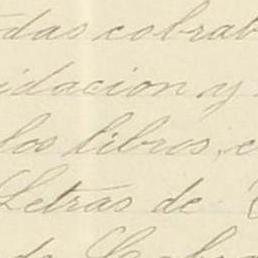 das cobrab
idacion y
los libros, c
Letras de
de